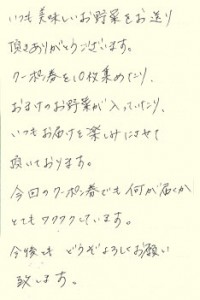 いつも美味しいお野菜をお送り
頂きありがとうございます。
クーポン券を10枚集めたり、
おまけのお野菜が入っていたり、
いつもお届けを楽しみにさせて
頂いております。
今回のクーポン券でも何が届くか
とてもワクワクしています。
今後とも どうぞよろしくお願い
致します。